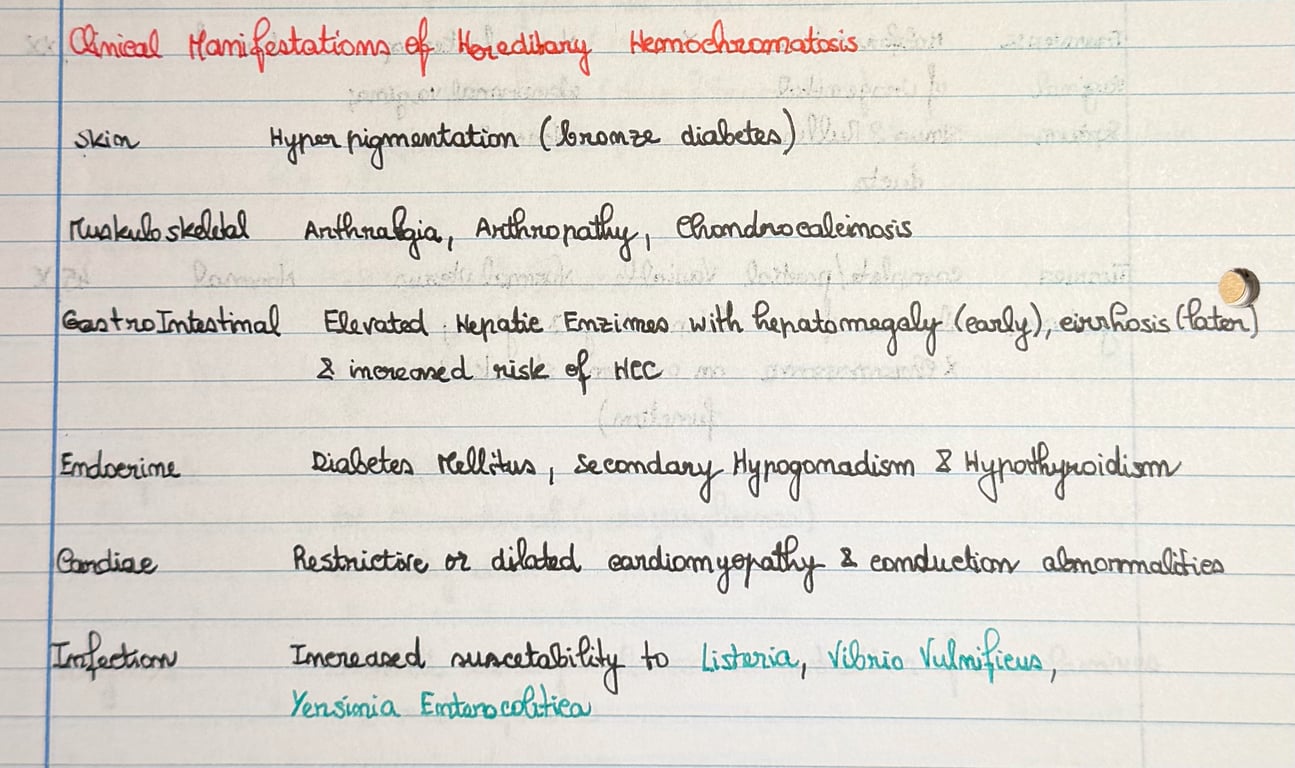 Clinical Manifestations of Hereditary Hemochromatosis
Skin Hyperpigmentation (bronze diabetes)
Muskuloskeletal Arthralgia, Arthropathy, Chondrocalcinosis
GastroIntestinal Elevated Hepatic Enzimes with hepatomegaly (early), cirrhosis (later)
& increased risk of HCC
Endocrine Diabetes Mellitus, Secondary Hypogonadism & Hypothyroidism
Cardiac Restrictive or dilated cardiomyopathy & conduction abnormalities
Infection Increased suscetability to Listeria, Vibrio Vulnificus,
Yersinia Enterocolitica